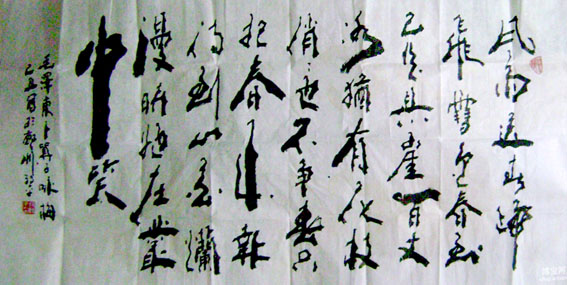 风雨送春歸
飛雪迎春到
已是悬崖百丈
冰犹有花枝
俏也不争春只
把春来報
待到山花爛
漫時她在叢
中笑
毛澤東卜算子咏梅
己丑